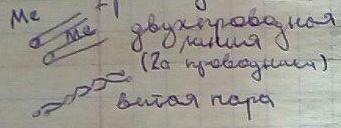 Ме
Ме двухпроводная
линия
(2а проводника)
витая пара